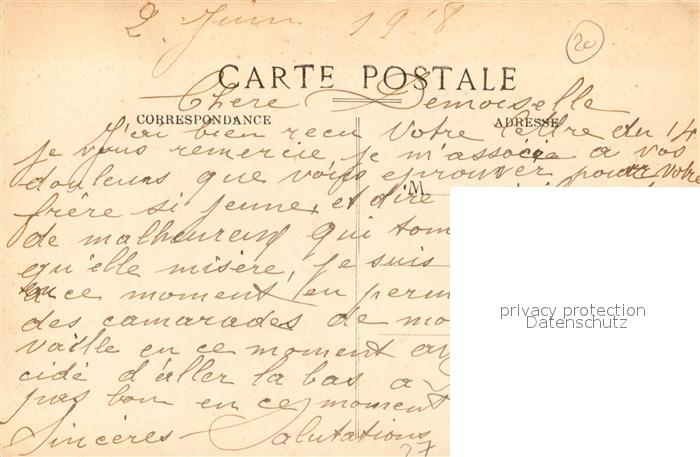 2 Juin 1918
20
CARTE POSTALE
Chère Demoiselle
CORRESPONDANCE
ADRESSE
J'ai bien reçu votre lettre du 14
je vous remercie je m'associe a vos
douleurs que vous eprouver pour votre
M.
frère si jeune, et dire
de malheureux qui tom
qu'elle misère, je suis
ce moment en perm
des camarades de mo
vaille en ce moment
cidé d'aller la bas a
pas bon en ce moment
Sincères Salutations
27
privacy protection
Datenschutz